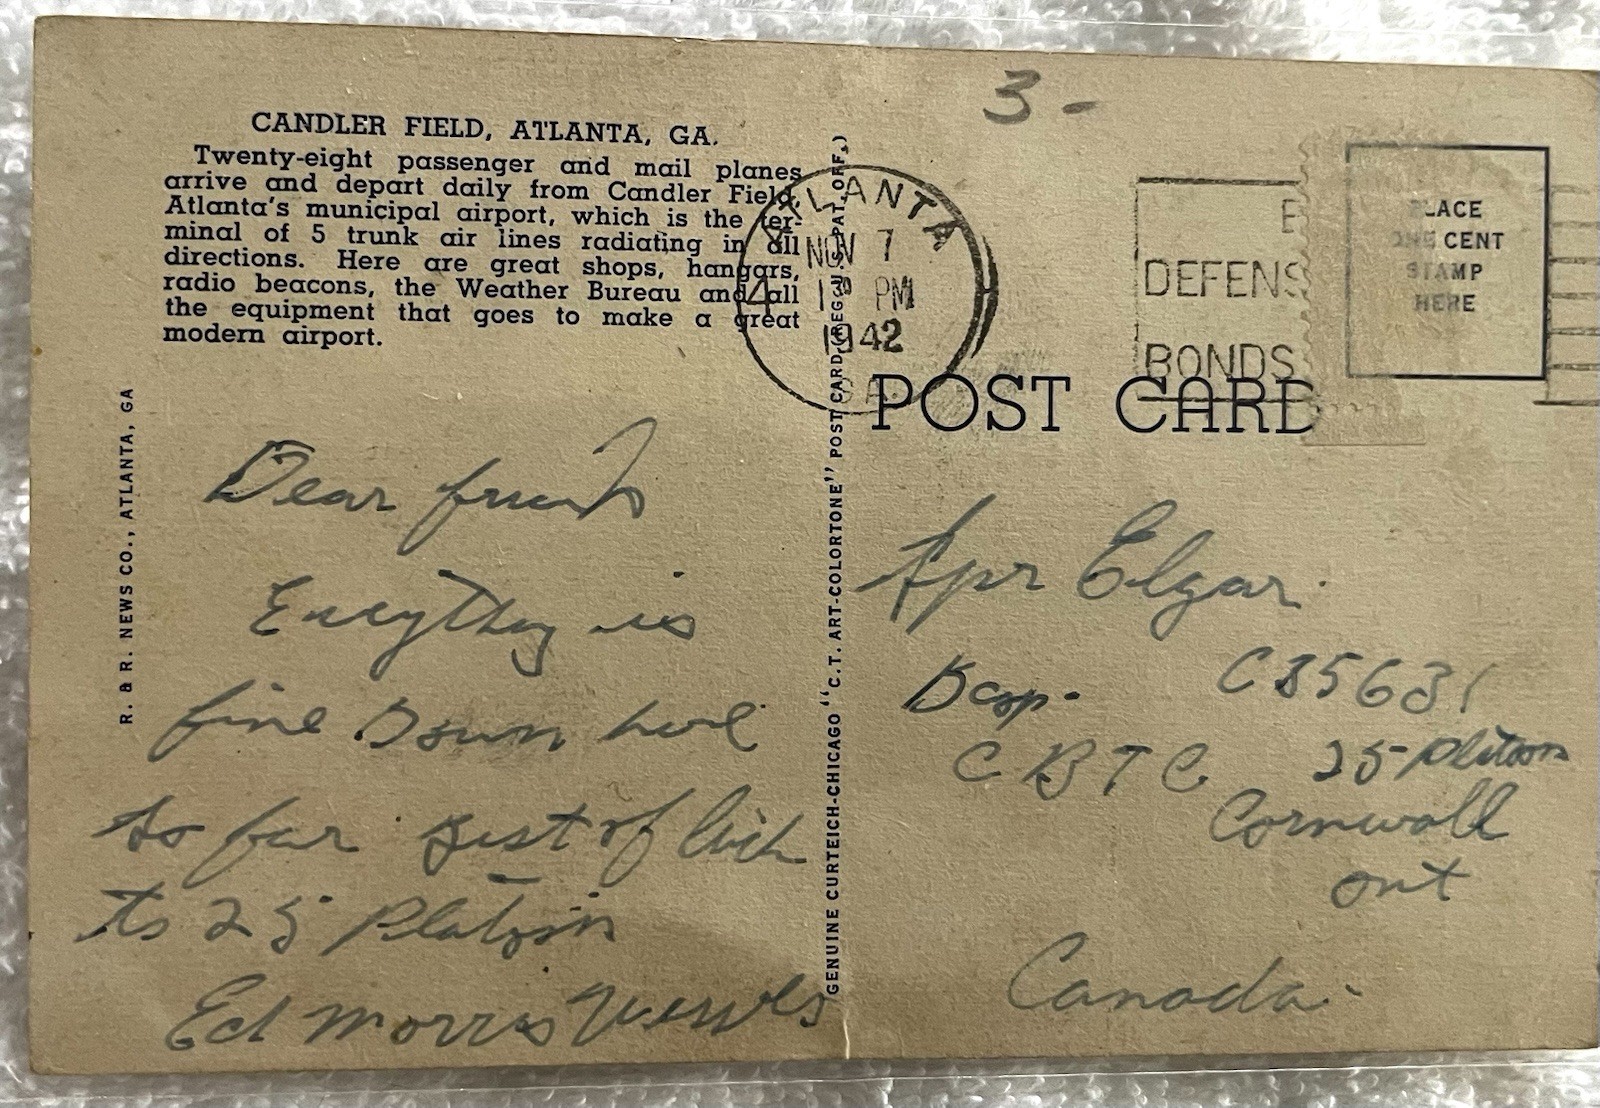 3-
CANDLER FIELD, ATLANTA, GA.
Twenty-eight passenger and mail planes
arrive and depart daily from Candler Field,
Atlanta's municipal airport, which is the ter-
minal of 5 trunk air lines radiating in all
directions. Here are great shops, hangars,
radio beacons, the Weather Bureau and all
the equipment that goes to make a great
modern airport.
R. & R. NEWS CO., ATLANTA, GA
GENUINE CURTEICH-CHICAGO "C.T. ART-COLORTONE" POST CARD (REG. U.S. PAT. OFF.)
ATLANTA
NOV 7
PM
1942
GA.
4
DEFENS
BONDS
PLACE
ONE CENT
STAMP
HERE
POST CARD
Dear friends
Everything is
fine Down here
so far Best of luck
to 25 Platoon
Ed Morris
Elgar.
C35631
C B T C 25 Platoon
Cornwall
Ont
Canada.